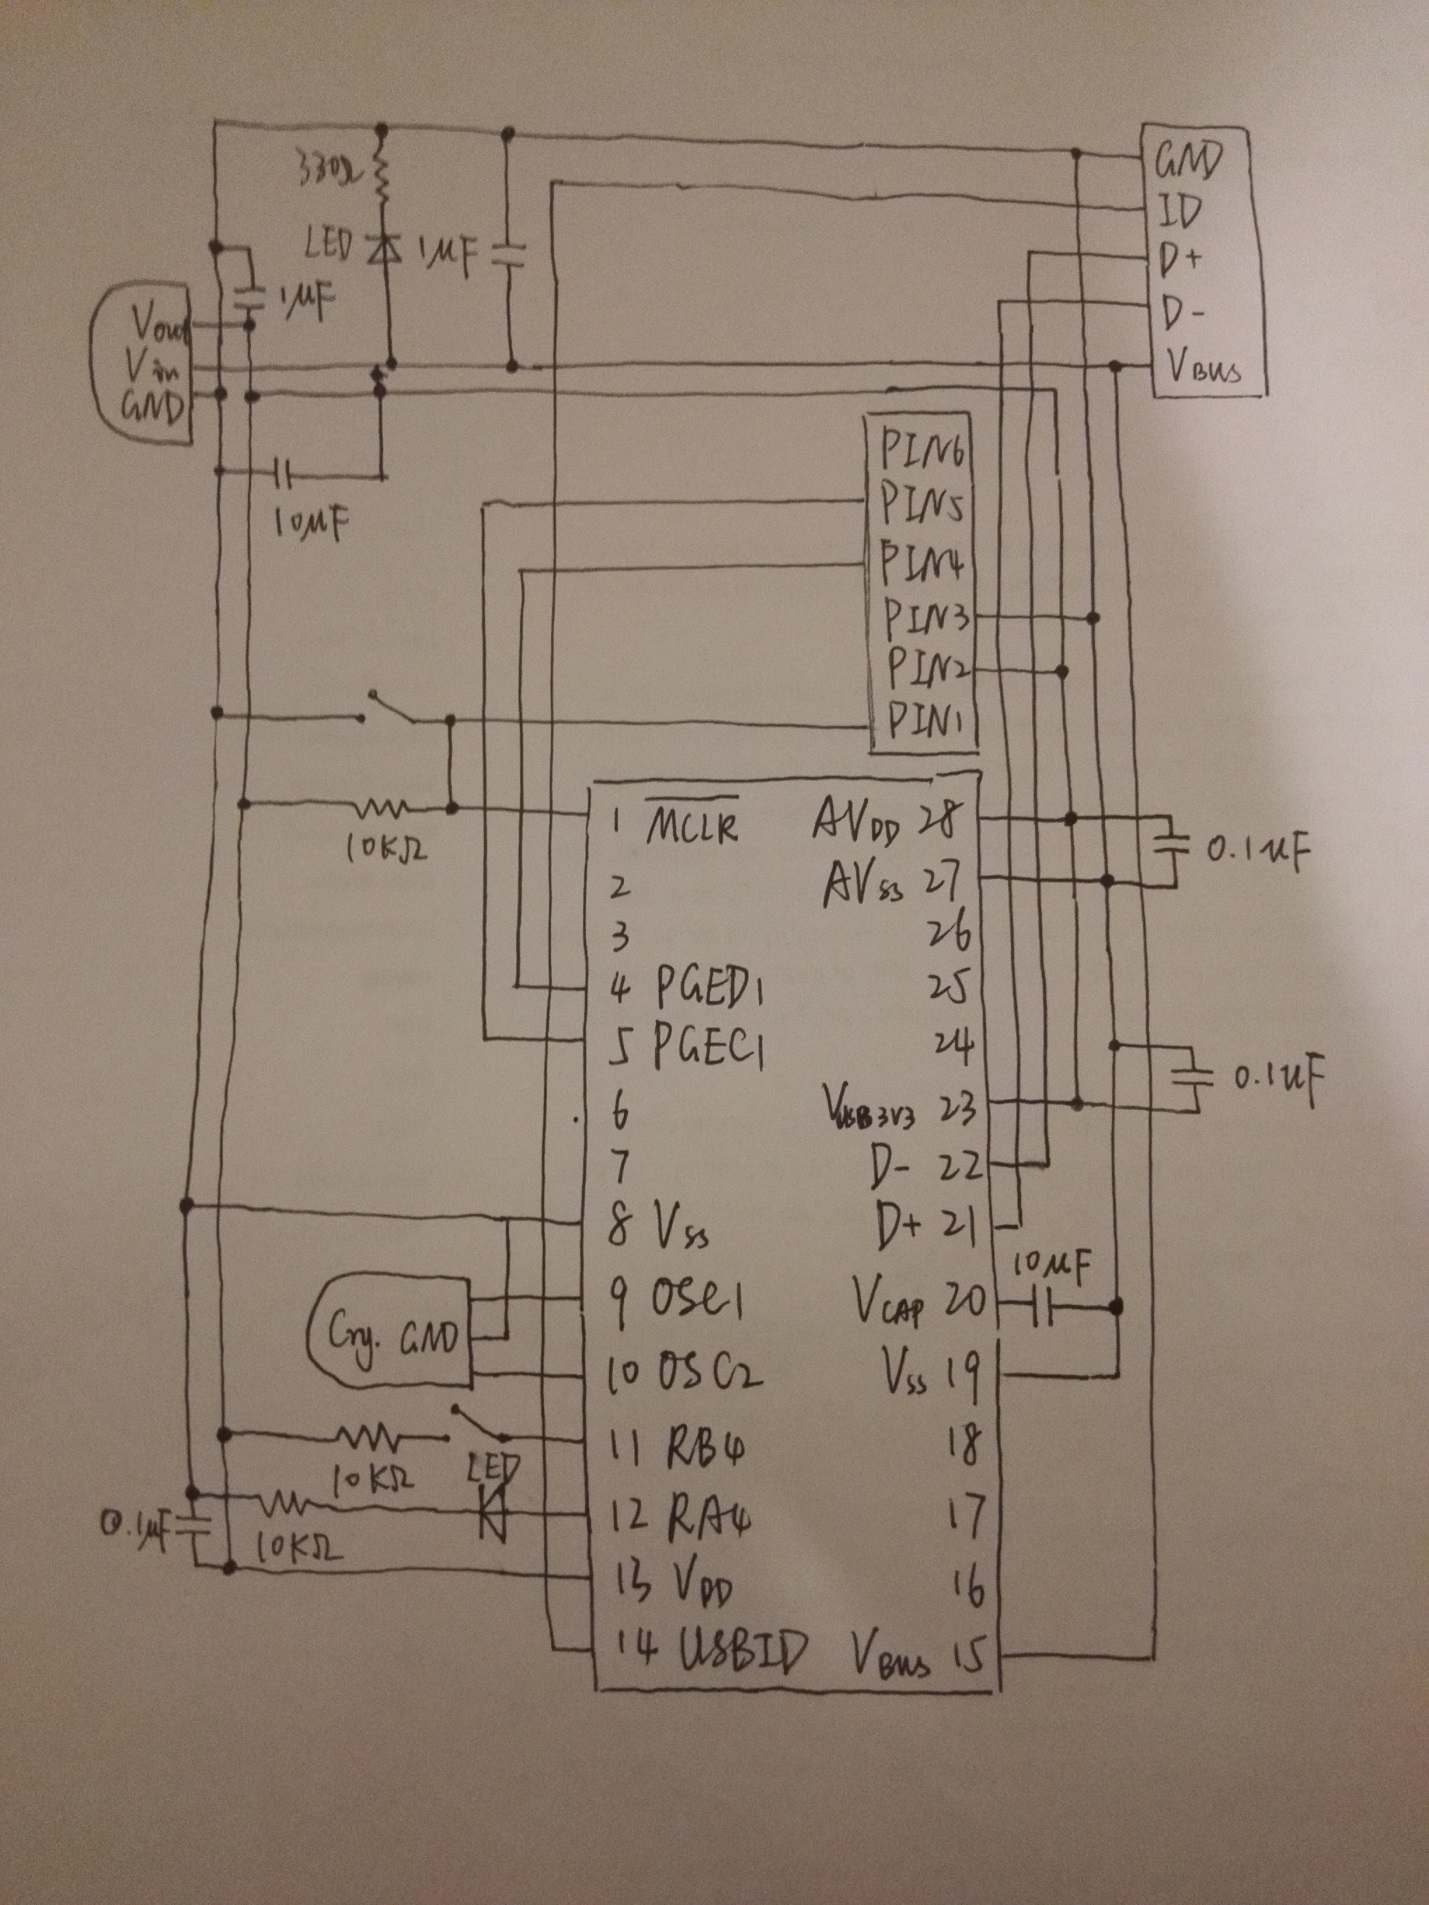 330Ω
LED
1μF
1μF
Vout
Vin
GND
10μF
GND
ID
D+
D-
VBUS
PIN6
PIN5
PIN4
PIN3
PIN2
PIN1
10KΩ
1 MCLR
2
3
4 PGED1
5 PGEC1
6
7
8 Vss
9 OSC1
10 OSC2
11 RB4
12 RA4
13 VDD
14 USBID
AVDD 28
AVss 27
26
25
24
VUSB3V3 23
D- 22
D+ 21
VCAP 20
Vss 19
18
17
16
VBUS 15
0.1uF
0.1uF
10μF
Cry. GND
10KΩ
LED
0.1μF
10KΩ